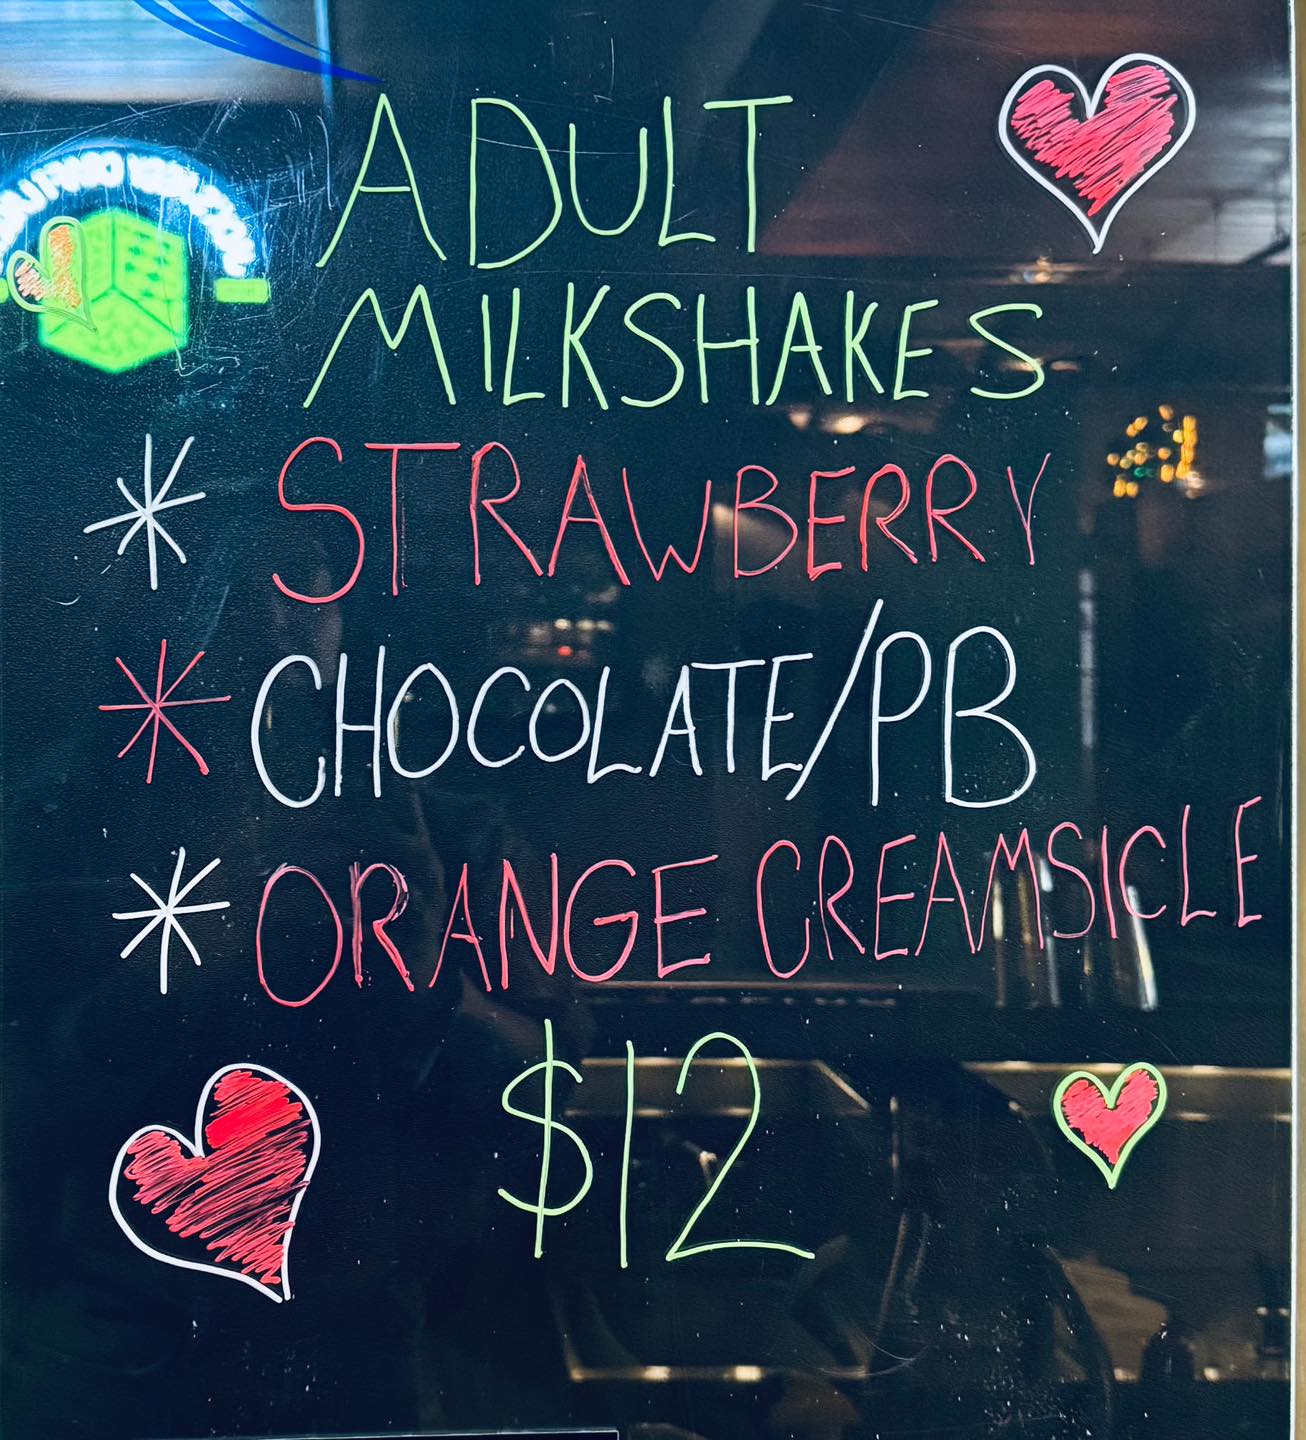 ADULT
MILKSHAKES
* STRAWBERRY
* CHOCOLATE/PB
* ORANGE CREAMSICLE
$12